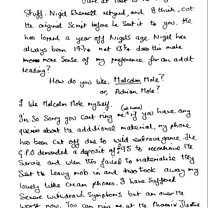 Stuff. Nigel Bennett retyped, and I think, cut
the original Script before he Sent it to you. He
has lopped a year off Nigels age. Nigel has
always been 14¾ not 13¾ does this make
more Sense of my preference for an adult
reading?
How do you like, Malcolm Mole?
or, Adrian Mole?
I like Malcolm Mole myself.
I'm So Sorry you Cant ring me if you have any
queries about the additional material, my phone
has been Cut off due to wild extravagance. The
G.P.O demanded a deposit of £75 to reconnect the
Service and when this failed to materialise they
Sent the heavy mob in and took away my
lovely Clean Cream phones. I have Suffered
Severe withdrawl Symptoms but am over the
worst now. You can ring me at the Phoenix